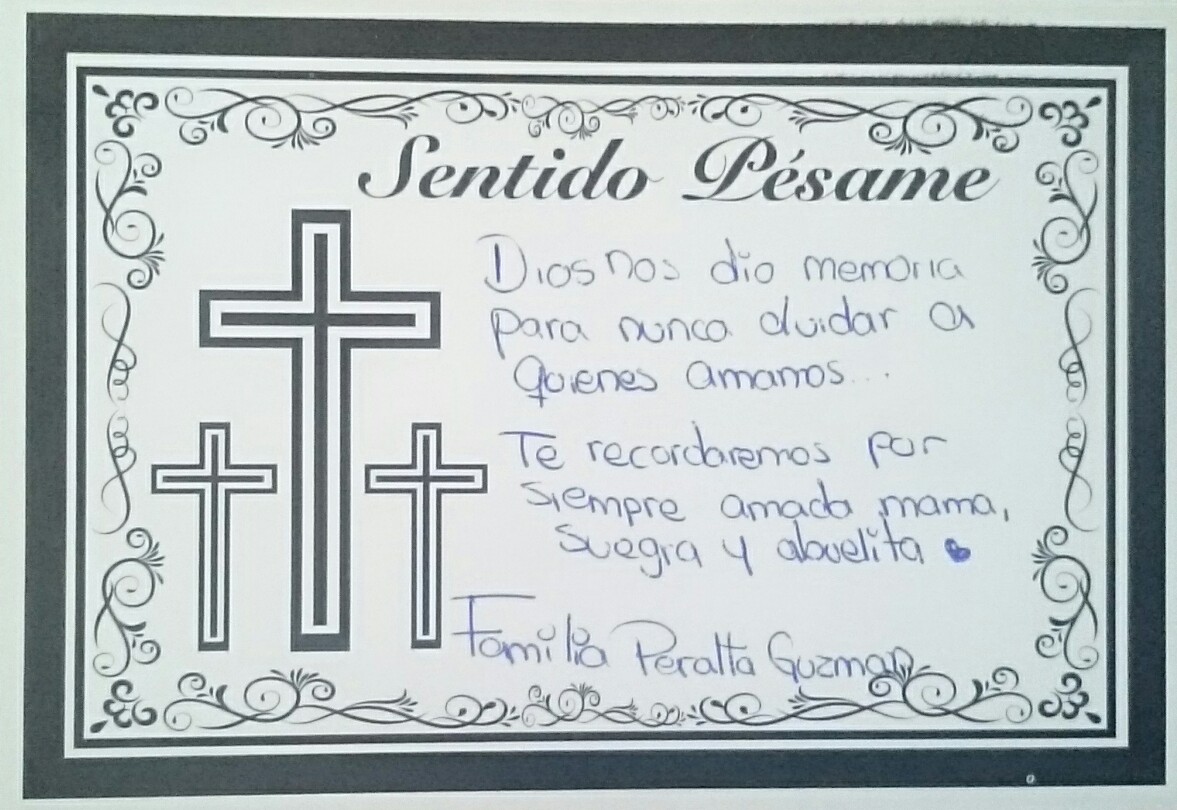 Sentido Pésame
Dios nos dio memoria
para nunca olvidar a
quienes amamos...
Te recordaremos por
siempre amada mama,
suegra y abuelita
Familia Peralta Guzman